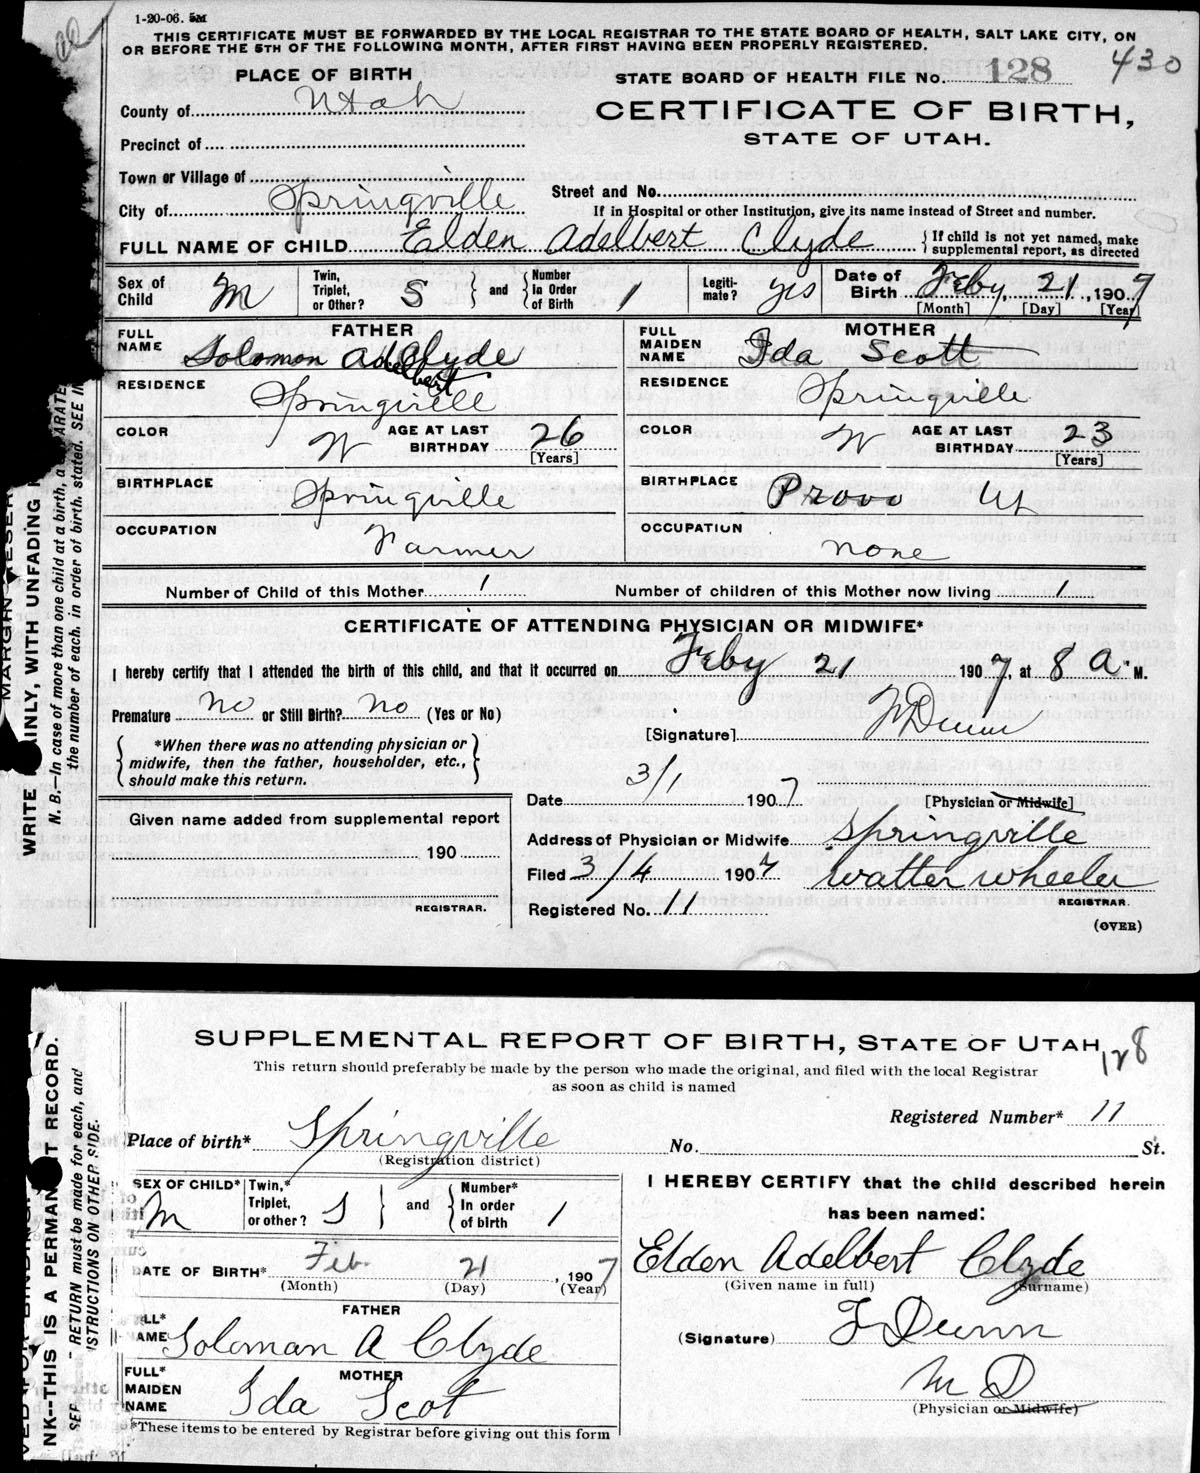 1-20-06. 5M
THIS CERTIFICATE MUST BE FORWARDED BY THE LOCAL REGISTRAR TO THE STATE BOARD OF HEALTH, SALT LAKE CITY, ON
OR BEFORE THE 5TH OF THE FOLLOWING MONTH, AFTER FIRST HAVING BEEN PROPERLY REGISTERED.
430
PLACE OF BIRTH
STATE BOARD OF HEALTH FILE No. 128
County of Utah
CERTIFICATE OF BIRTH,
STATE OF UTAH.
Precinct of
Town or Village of
City of Springville
Street and No.
If in Hospital or other Institution, give its name instead of Street and number.
FULL NAME OF CHILD Elden Adelbert Clyde {If child is not yet named, make supplemental report, as directed
Sex of Child M
Twin, Triplet, or Other? S } and { Number In Order of Birth 1
Legiti-mate? yes
Date of Birth Feby. 21, 1907
[Month] [Day] [Year]
FATHER
FULL NAME Solomon Adelbert Clyde
RESIDENCE Springville
COLOR W AGE AT LAST BIRTHDAY 26
[Years]
BIRTHPLACE Springville
OCCUPATION Farmer
MOTHER
FULL MAIDEN NAME Ida Scott
RESIDENCE Springville
COLOR W AGE AT LAST BIRTHDAY 23
[Years]
BIRTHPLACE Provo Ut
OCCUPATION none
Number of Child of this Mother 1
Number of children of this Mother now living 1
CERTIFICATE OF ATTENDING PHYSICIAN OR MIDWIFE*
I hereby certify that I attended the birth of this child, and that it occurred on Feby 21 1907, at 8 A. M.
Premature no or Still Birth? no (Yes or No)
[Signature] Dunn
{*When there was no attending physician or
midwife, then the father, householder, etc.,
should make this return.}
Date 3/1 1907
[Physician or Midwife]
Given name added from supplemental report
190
REGISTRAR.
Address of Physician or Midwife Springville
Filed 3/4 1907 Walter Wheeler
REGISTRAR.
Registered No. 11
(OVER)
WRITE INLY, WITH UNFADING
N. B.—In case of more than one child at a birth, a ARATE
the number of each, in order of birth, stated. SEE IN
SUPPLEMENTAL REPORT OF BIRTH, STATE OF UTAH
128
This return should preferably be made by the person who made the original, and filed with the local Registrar
as soon as child is named
Registered Number* 11
Place of birth* Springville No. St.
(Registration district)
SEX OF CHILD* M
Twin,* Triplet, or other? S } and { Number* In order of birth 1
DATE OF BIRTH* Feb. 21, 1907
(Month) (Day) (Year)
FATHER
LL* AME Soloman A Clyde
MOTHER
FULL* MAIDEN NAME Ida Scot
*These items to be entered by Registrar before giving out this form
I HEREBY CERTIFY that the child described herein
has been named:
Elden Adelbert Clyde
(Given name in full) (Surname)
(Signature) F Dunn
M D
(Physician or Midwife)
NK--THIS IS A PERMAN T RECORD.
RETURN must be made for each, and
STRUCTIONS ON OTHER SIDE.